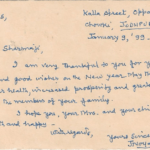 Kalla Street, Oppo
Chowki, JODHPUR
January 9, '99
Sharmaji,
I am very thankful to you for y
and good wishes on the New year. May th
health, increased prosperity and great
the members of your family.
I hope you, your Mrs. and your chi
and happy.
With regards,
Yours Since